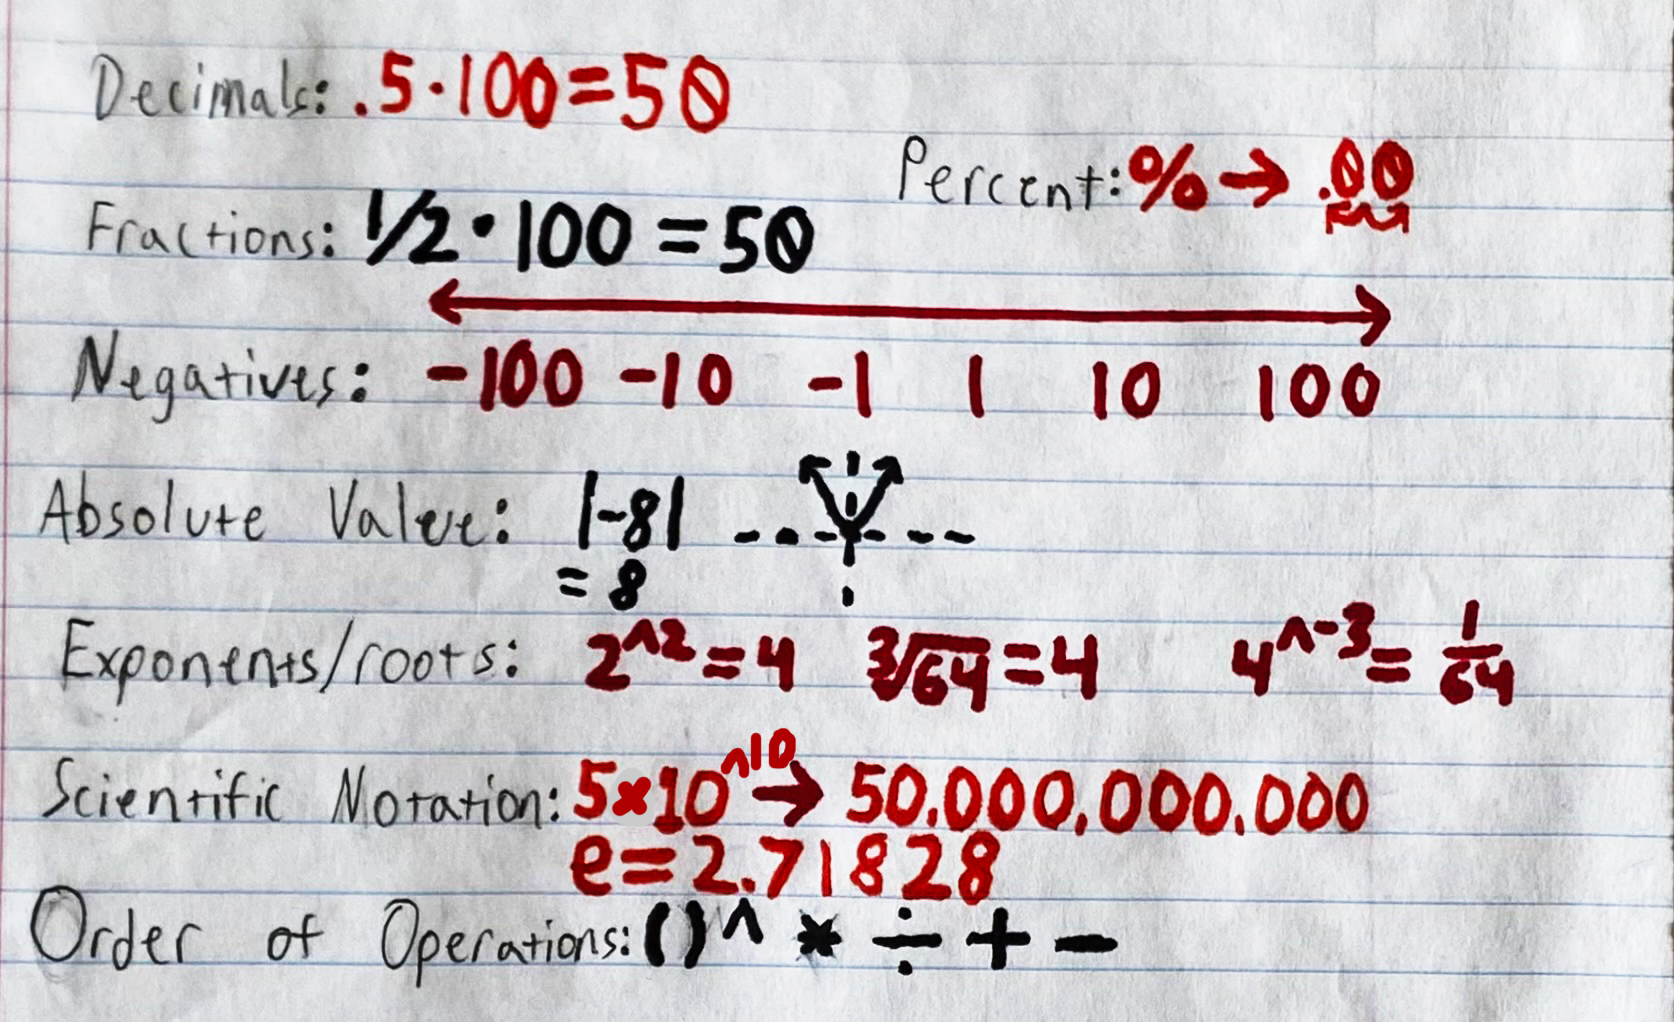 Decimals: .5·100=50
Percent: % → .00
Fractions: 1/2·100=50
Negatives: -100 -10 -1 1 10 100
Absolute Value: |-8|
= 8
Exponents/roots: 2^2=4 ∛64=4 4^-3= 1/64
Scientific Notation: 5×10^10 → 50,000,000,000
e=2.71828
Order of Operations: () ^ * ÷ + −